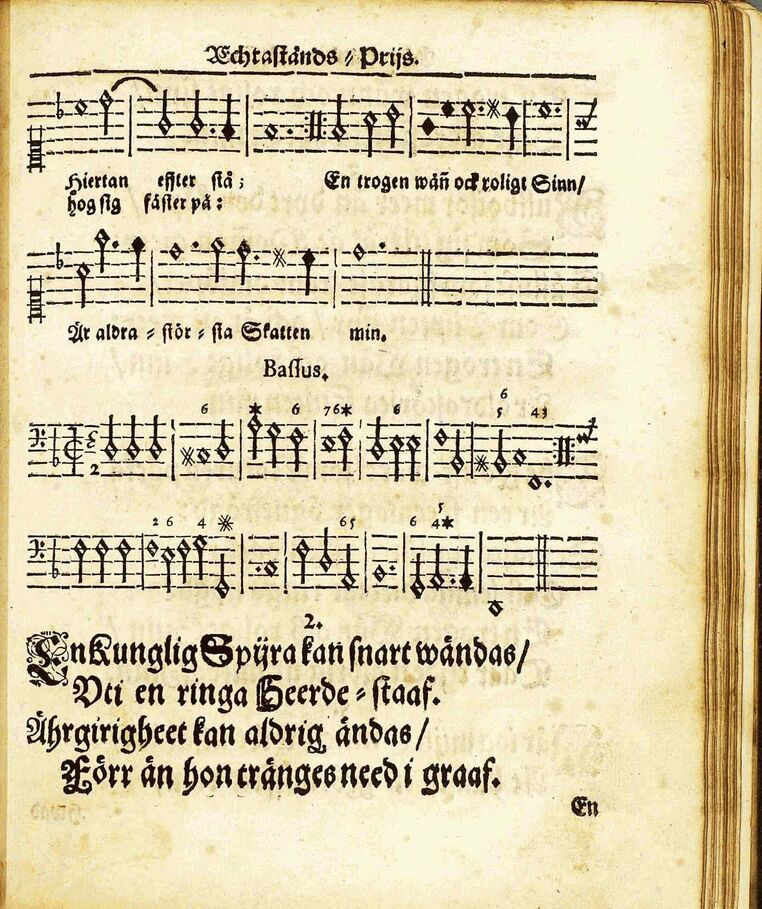 Echtastånds-Prijs.
Hiertan effter stå;
En trogen wän̄ ock roligt Sinn/
hog sig fäster på:
Är aldra-stör-sta Skatten min.
Bassus.
6 * 6 76* 6 5 6 43
2
2 6 4 * 65 6 4 5 *
2.
En Kunglig Spijra kan snart wändas/
Uti en ringa Heerde-staaf.
Ährgirigheet kan aldrig ändas/
Förr än hon tränges need i graaf.
En